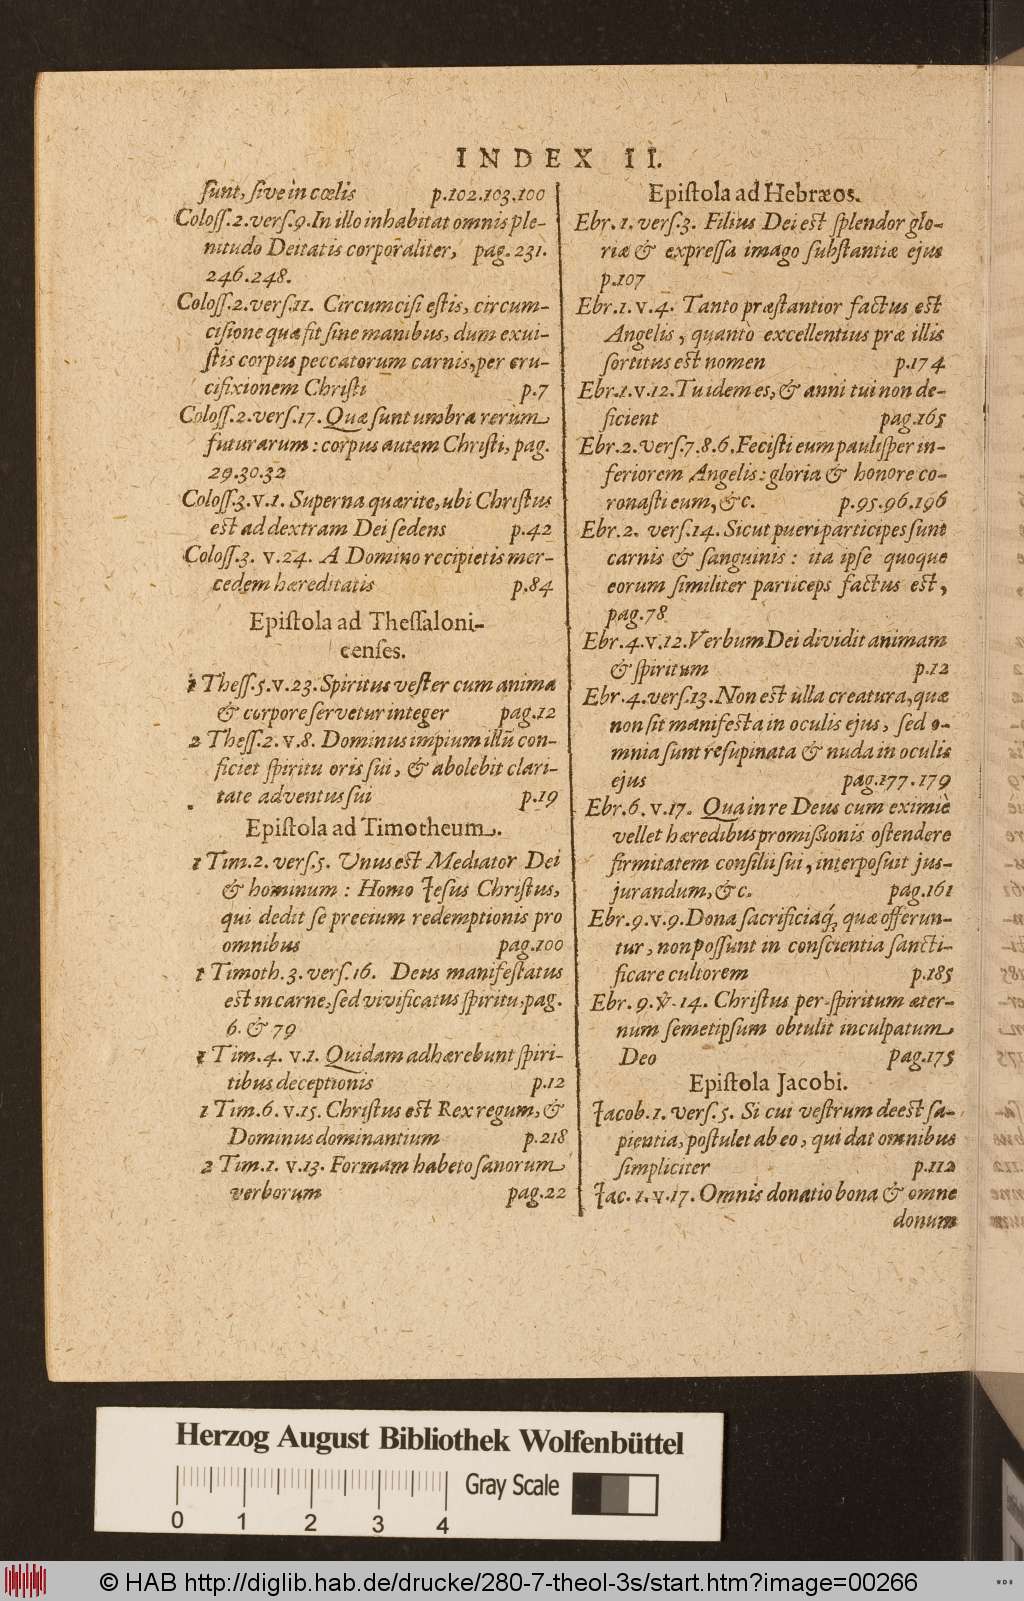 INDEX II.
sunt, sive in cœlis p.102.103.100
Coloss.2.vers.9.In illo inhabitat omnis ple-
nitudo Deitatis corporaliter, pag.231.
246.248.
Coloss.2.vers.11. Circumcisi estis, circum-
cisione quæ fit sine manibus, dum exui-
stis corpus peccatorum carnis, per cru-
cifixionem Christi p.7
Coloss.2.vers.17. Quæ sunt umbra rerum
futurarum: corpus autem Christi, pag.
29.30.32
Coloss.3.v.1. Superna quærite, ubi Christus
est ad dextram Dei sedens p.42
Coloss.3. v.24. A Domino recipietis mer-
cedem hæreditatis p.84
Epistola ad Thessaloni-
censes.
1 Thess.5.v.23. Spiritus vester cum anima
& corpore servetur integer pag.12
2 Thess.2.v.8. Dominus impium illũ con-
ficiet spiritu oris sui, & abolebit clari-
tate adventus sui p.19
Epistola ad Timotheum.
1 Tim.2. vers.5. Unus est Mediator Dei
& hominum: Homo Jesus Christus,
qui dedit se precium redemptionis pro
omnibus pag.100
1 Timoth.3. vers.16. Deus manifestatus
est in carne, sed vivificatus spiritu, pag.
6. & 79
1 Tim.4. v.1. Quidam adhærebunt spiri-
tibus deceptionis p.12
1 Tim.6. v.15. Christus est Rex regum, &
Dominus dominantium p.218
2 Tim.1. v.13. Formam habeto sanorum
verborum pag.22
Epistola ad Hebræos.
Ebr.1. vers.3. Filius Dei est splendor glo-
riæ & expressa imago substantiæ ejus
p.107
Ebr.1.v.4. Tanto præstantior factus est
Angelis, quanto excellentius præ illis
sortitus est nomen p.174
Ebr.1.v.12. Tu idem es, & anni tui non de-
ficient pag.165
Ebr.2.vers.7.8.6. Fecisti eum paulisper in-
feriorem Angelis: gloria & honore co-
ronasti eum, &c. p.95.96.196
Ebr.2. vers.14. Sicut pueri participes sunt
carnis & sanguinis: ita ipse quoque
eorum similiter particeps factus est,
pag.78
Ebr.4.v.12. Verbum Dei dividit animam
& spiritum p.12
Ebr.4.vers.13. Non est ulla creatura, quæ
non sit manifesta in oculis ejus, sed o-
mnia sunt resupinata & nuda in oculis
ejus pag.177.179
Ebr.6.v.17. Qua in re Deus cum eximiè
vellet hæredibus promissionis ostendere
firmitatem consilii sui, interposuit jus-
jurandum, &c. pag.161
Ebr.9.v.9. Dona sacrificiaq́;, quæ offerun-
tur, non possunt in conscientia sancti-
ficare cultorem p.185
Ebr.9.v.14. Christus per spiritum æter-
num semetipsum obtulit inculpatum
Deo pag.175
Epistola Jacobi.
Jacob.1. vers.5. Si cui vestrum deest sa-
pientia, postulet ab eo, qui dat omnibus
simpliciter p.112
Jac.1.v.17. Omnis donatio bona & omne
donum
Herzog August Bibliothek Wolfenbüttel
Gray Scale
0 1 2 3 4
© HAB http://diglib.hab.de/drucke/280-7-theol-3s/start.htm?image=00266